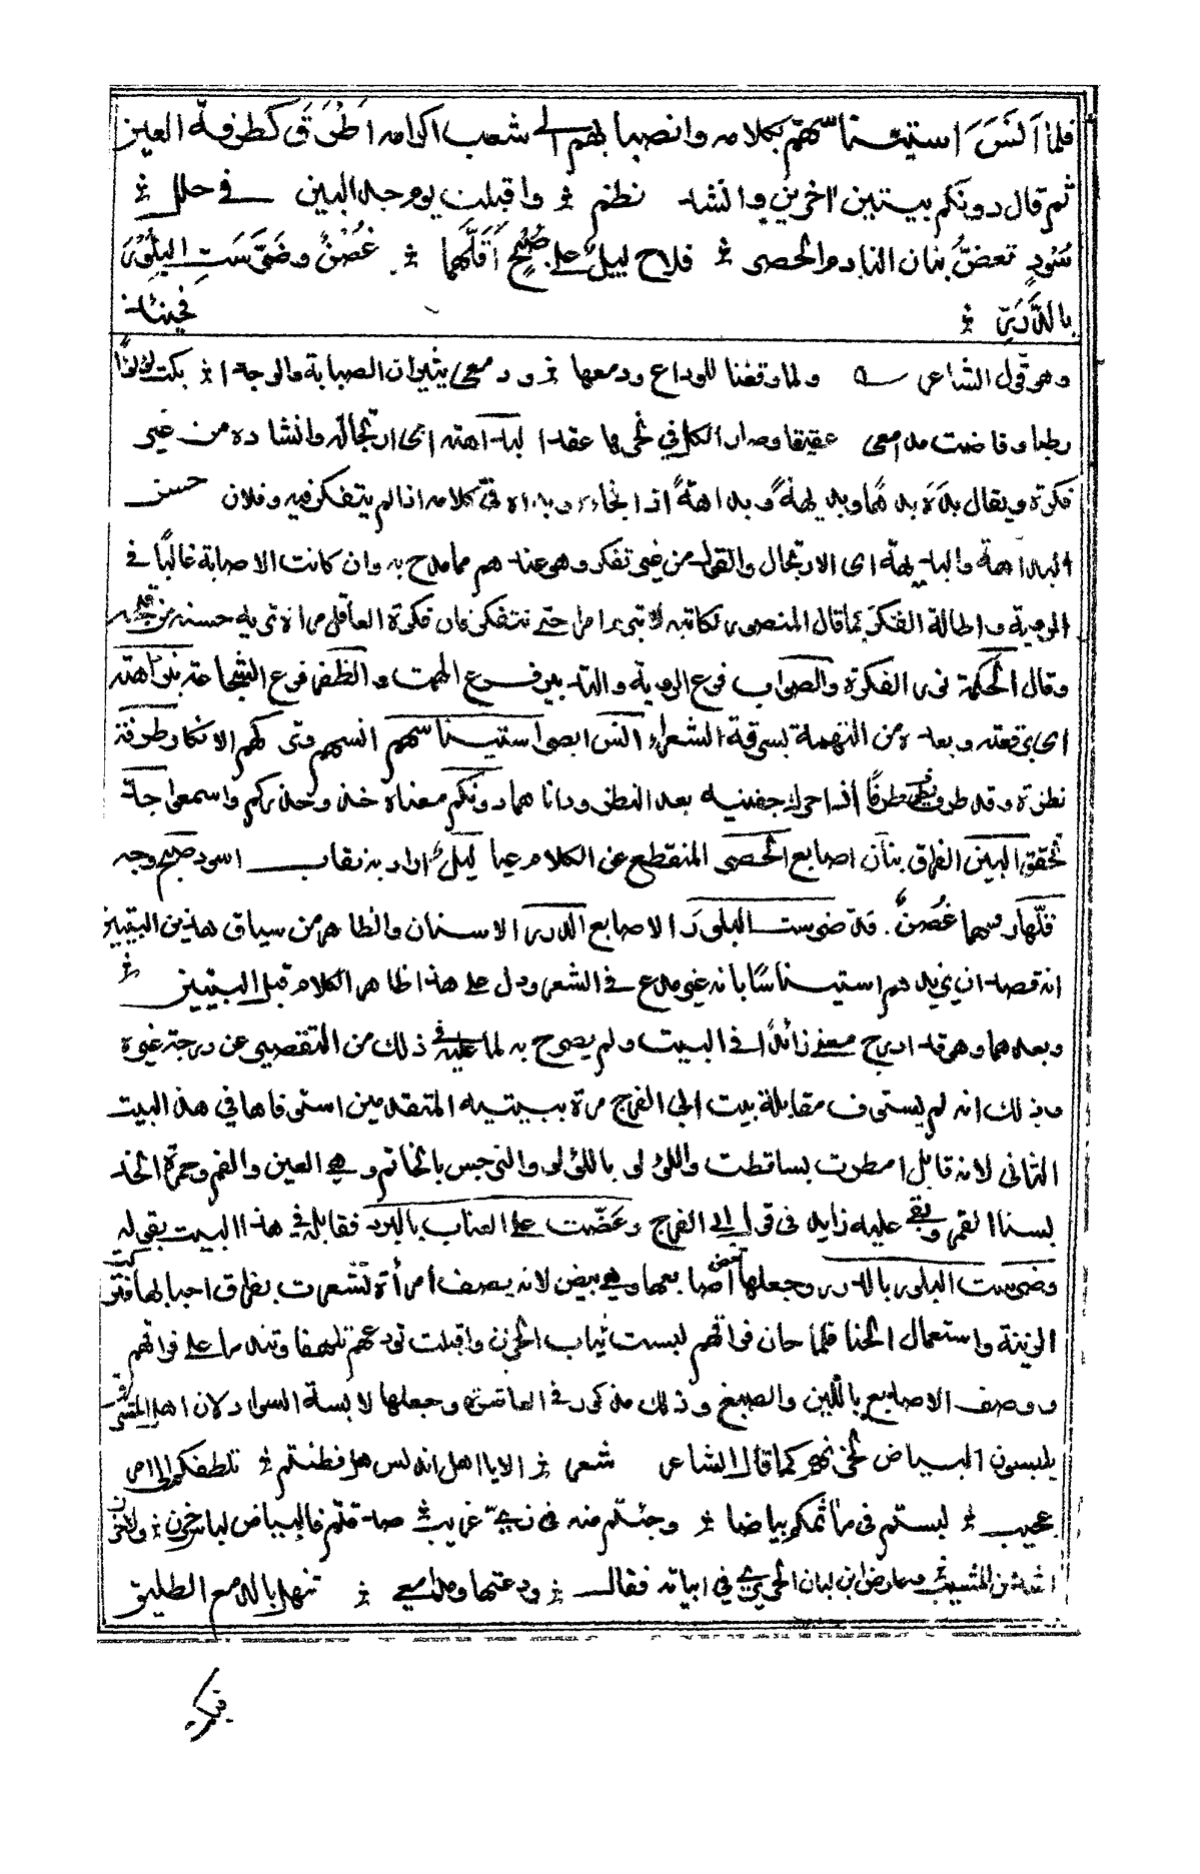 فلمّا اَنَسَ استيناسهم بكلامه وانصبابهم الى شعب اكرامه اَطْرَقَ كطرفة العين
ثم قال دونكم بيتين اخرين وانشد نظم واقبلت يوم جد البين في حلل
سُودٍ تعضّ بنان النادم الحصر فلاح ليلٌ على صُبْحٍ اَقَلَّهما غُصْنٌ وضَرَّسَتِ البِلَّوْرَ
بالدُّرَرِ فحينئذ
وهو قول الشاعر ولما وقفنا للوداع ودمعها ودمعي يثيران الصبابة والوجدا بكت لؤلؤاً
رطبا وفاضت مدامعي عقيقا وصار الكل في نحرها عقدا البداهته اى ارتجاله وانشاده من غير
فكرة ويقال بدَهَ بدهًا وبديهةً وبداهةً اذا فجاء وبداه في كلامه اذا لم يتفكر فيه وفلان حسن
البداهة والبديهة اى الارتجال والقول من غير تفكر وهو عندهم مما مدح به وان كانت الاصابة غالبًا في
الروية واطالة الفكر كما قال المنصور لكاتبه لا تبرم امرا حتى تتفكر فان فكرة العاقل مراة تريه حسنه من قبحه
وقال الحكمة نور الفكرة والصواب فرع الروية والتدبير فرع الهمة والظفر فرع الشجاعة بنزاهته
اى برفعته وبعده من التهمة بسرقة الشعراء انس ابصر استيناسهم انسهم وترك لهم الانكار طرفة
نظرة وقد طرف طرفًا اذا حرك جفنيه بعد النظر ودانا هما دونكم معناه خذوا واسمعوا جدّ
تحقق البين الفراق بنان اصابع الحصر المنقطع عن الكلام عيا ليل اراد به نقاب اسود صبح وجه
اقلّهما رفعهما غصن. قد ضرست البلور الاصابع الدرر الاسنان والظاهر من سياق هذين البيتين
انه قصد ان يزيدهم استيناسًا بانه غير مدع في الشعر ودل على هذا ظاهر الكلام قبل البيتين
وبعدهما وهو قد ادرج معنى زائدًا في البيت ولم يصرح به لما عليه في ذلك من التقصير عن درجة غيره
وذلك انه لم يستوف مقابلة بيت ابى الفرج مرة ببيتيه المتقدمين استوفاها في هذا البيت
الثانى لانه قابل امطرت بساقطت واللؤلؤ باللؤلؤ والنرجس بالخاتم وهي العين والفم وحمرة الخد
بسنا القمر وبقي عليه زايد في قول ابى الفرج وعَضّت على العناب بالبرد فقابله في هذا البيت بقوله
وضرست البلور بالدرر وجعلها اصابعها وهي بيض لانه يصف امرأة شعرت بفراق احبابها فتركت
الزينة واستعمال الحنا فلما حان فراقهم لبست ثياب الحزن واقبلت تودعهم تلهفا وتندما على فراقهم
ووصف الاصابع باللين والصبغ وذلك مذكور في العاشرة وجعلها لابسة السواد لان اهل المشرق
يلبسون البياض لحزنهم كما قال الشاعر شعر الا يا اهل اندلس هل فطنتم تلطفكم الى امر
عجيب لبستم في مأتمكم بياضا وجئتم منه في زيّ غريب صدقتم فالبياض لباس حزن ولا حزن
اشد من المشيب وعارض ابن لبان الحريري في ابياته فقال ودعتها ومدامعي تنهل بالدمع الطليق